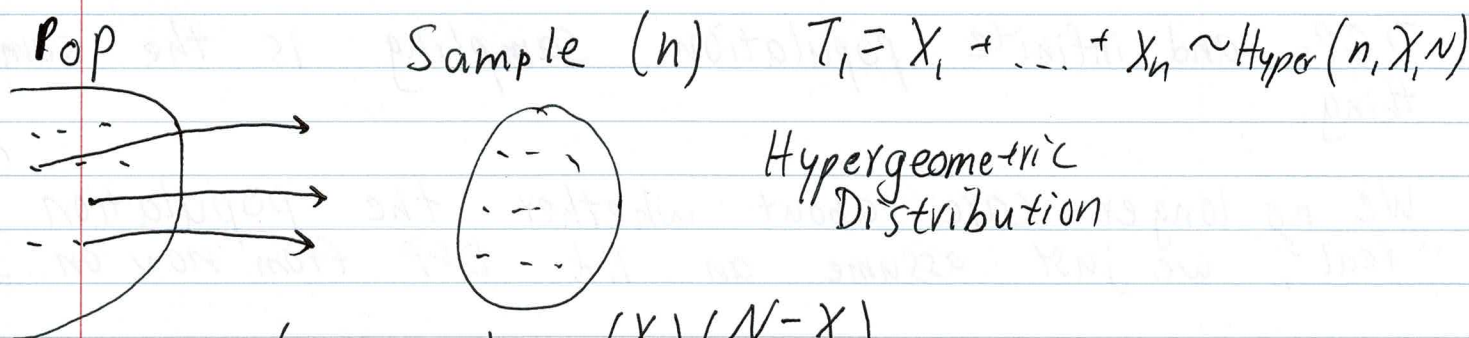 Pop Sample (n) T₁ = X₁ + ... + Xₙ ~ Hyper(n, X, N)
Hypergeometric
Distribution
(X)(N-X)